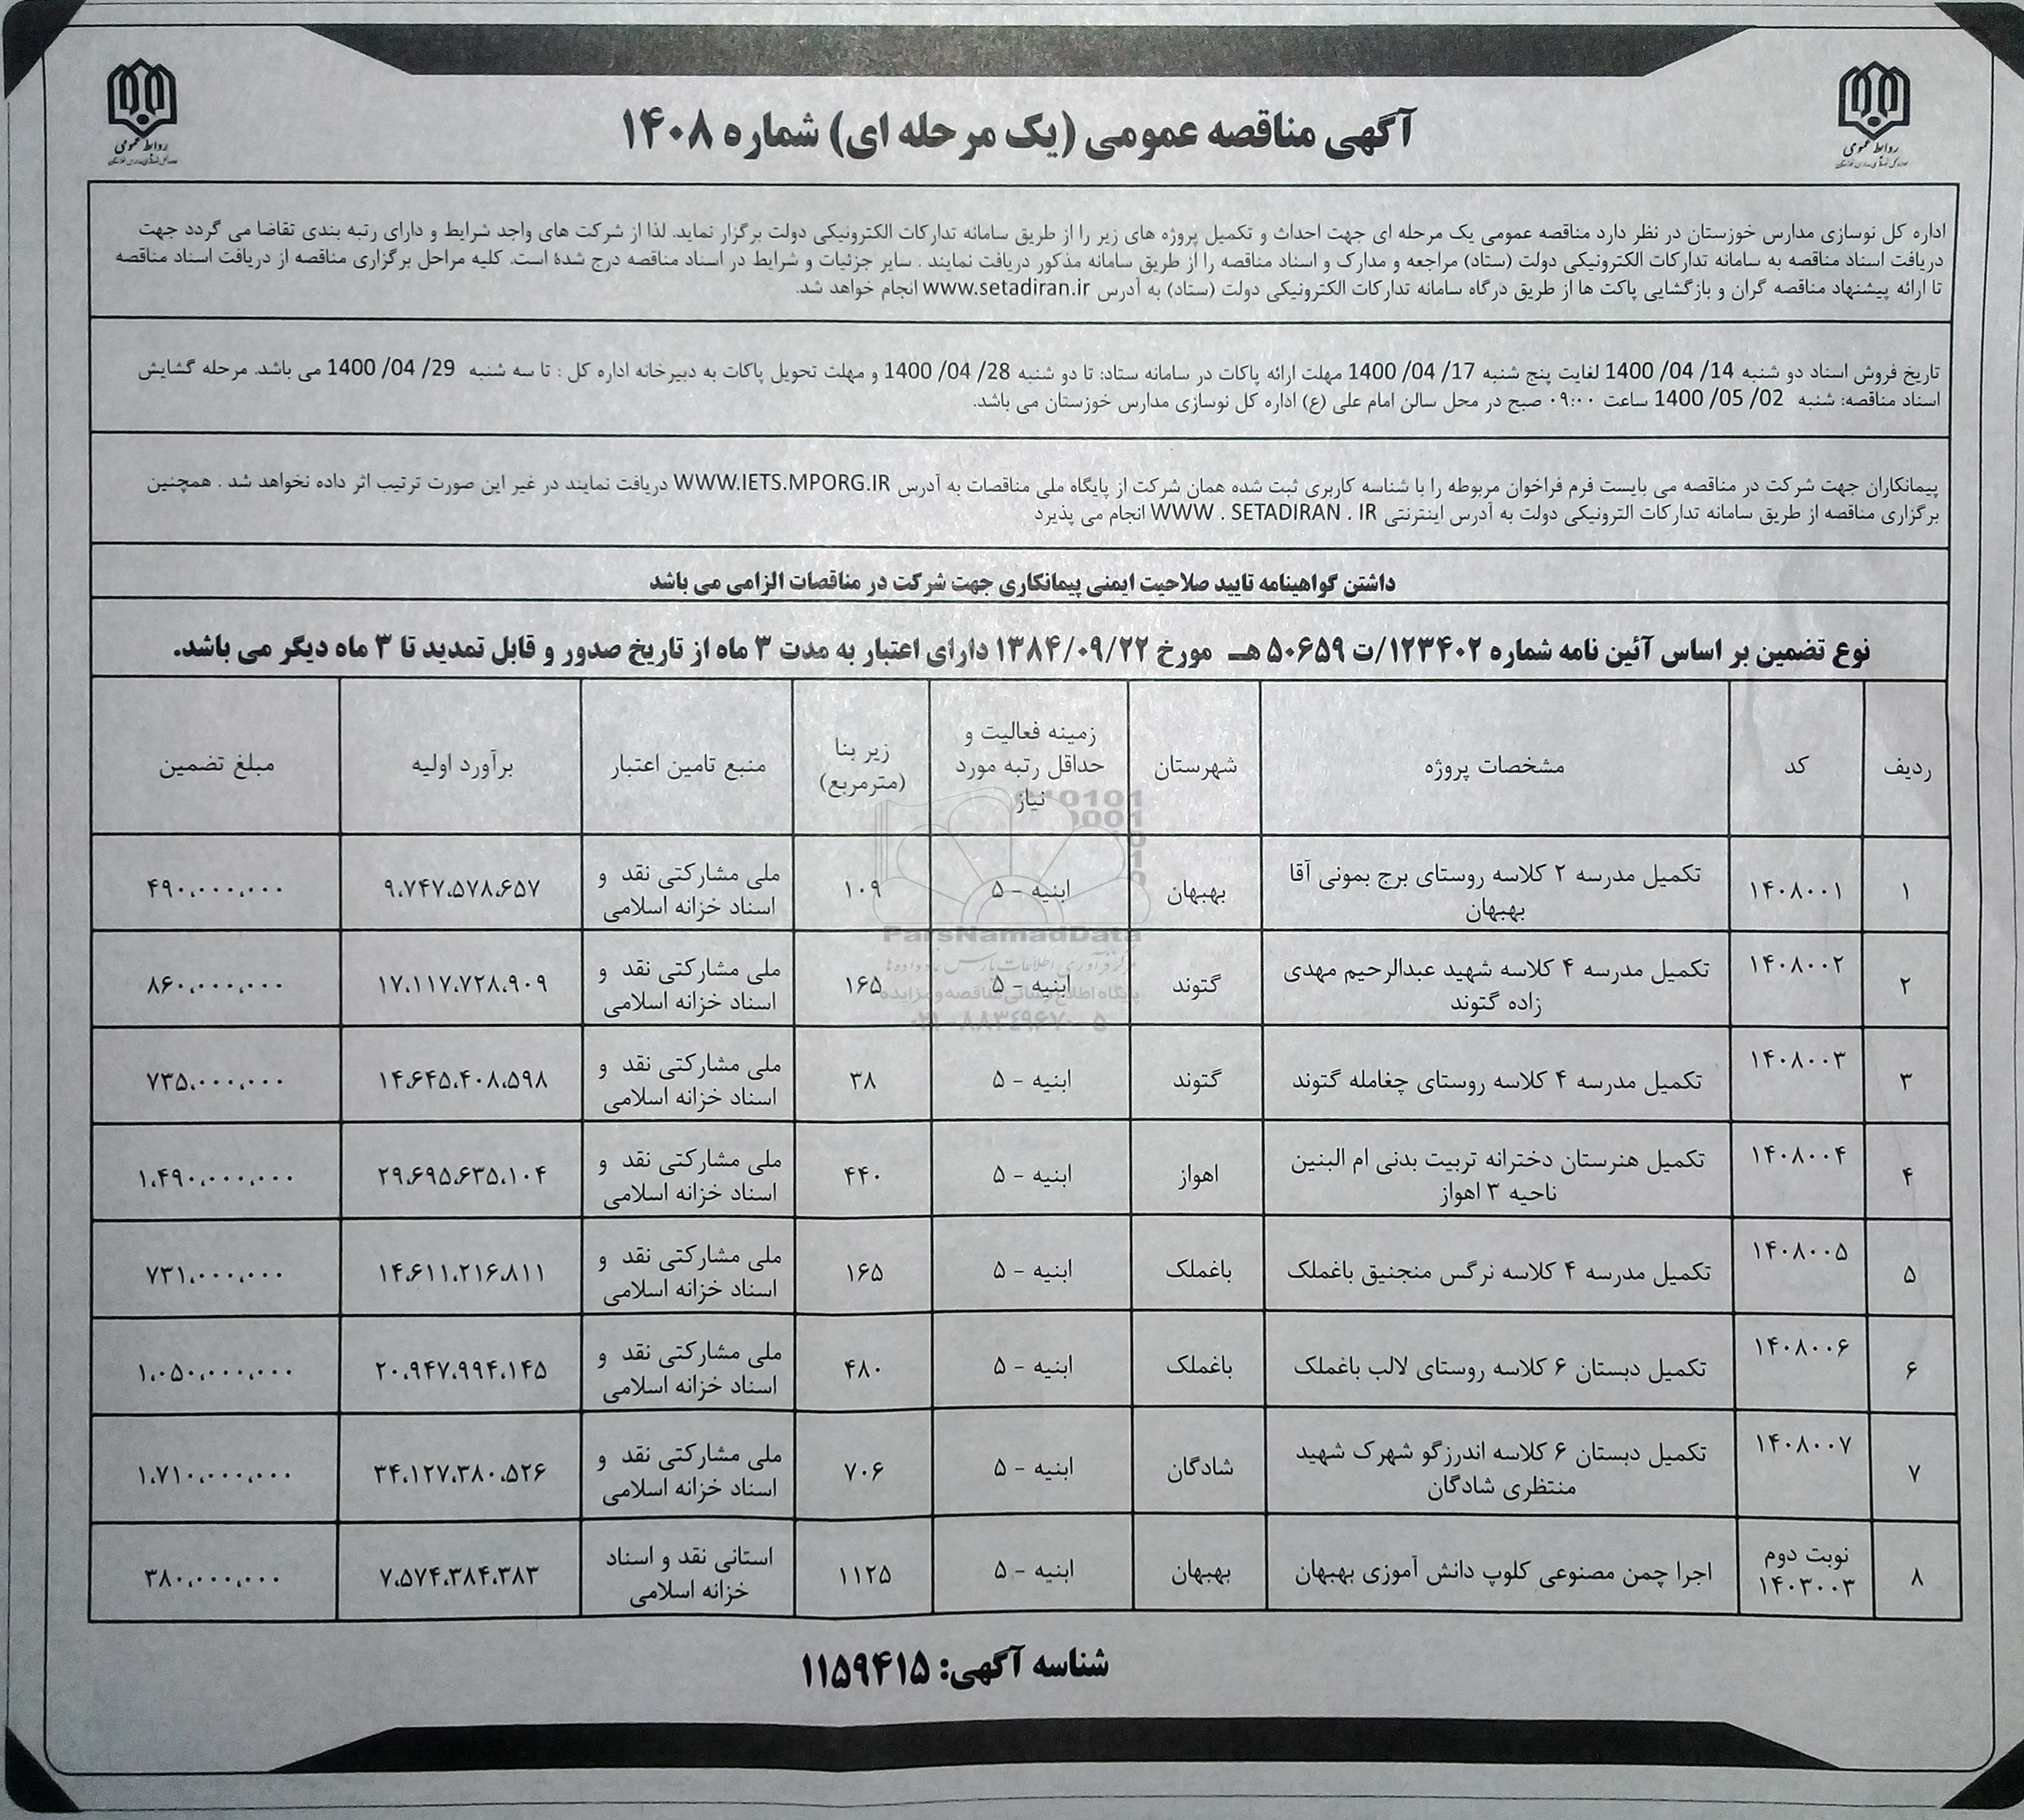 آگهی مناقصه عمومی (یک مرحله ای) شماره ۱۴۰۸
روابط عمومی
روابط عمومی
اداره کل نوسازی مدارس خوزستان در نظر دارد مناقصه عمومی یک مرحله ای جهت احداث و تکمیل پروژه های زیر را از طریق سامانه تدارکات الکترونیکی دولت برگزار نماید. لذا از شرکت های واجد شرایط و دارای رتبه بندی تقاضا می گردد جهت
دریافت اسناد مناقصه به سامانه تدارکات الکترونیکی دولت (ستاد) مراجعه و مدارک و اسناد مناقصه را از طریق سامانه مذکور دریافت نمایند . سایر جزئیات و شرایط در اسناد مناقصه درج شده است. کلیه مراحل برگزاری مناقصه از دریافت اسناد مناقصه
تا ارائه پیشنهاد مناقصه گران و بازگشایی پاکت ها از طریق درگاه سامانه تدارکات الکترونیکی دولت (ستاد) به آدرس www.setadiran.ir انجام خواهد شد.
تاریخ فروش اسناد دو شنبه 14/ 04/ 1400 لغایت پنج شنبه 17/ 04/ 1400 مهلت ارائه پاکات در سامانه ستاد: تا دو شنبه 28/ 04/ 1400 و مهلت تحویل پاکات به دبیرخانه اداره کل : تا سه شنبه 29/ 04/ 1400 می باشد. مرحله گشایش
اسناد مناقصه: شنبه 02/ 05/ 1400 ساعت ۰۹:۰۰ صبح در محل سالن امام علی (ع) اداره کل نوسازی مدارس خوزستان می باشد.
پیمانکاران جهت شرکت در مناقصه می بایست فرم فراخوان مربوطه را با شناسه کاربری ثبت شده همان شرکت از پایگاه ملی مناقصات به آدرس WWW.IETS.MPORG.IR دریافت نمایند در غیر این صورت ترتیب اثر داده نخواهد شد . همچنین
برگزاری مناقصه از طریق سامانه تدارکات الترونیکی دولت به آدرس اینترنتی WWW . SETADIRAN . IR انجام می پذیرد
داشتن گواهینامه تایید صلاحیت ایمنی پیمانکاری جهت شرکت در مناقصات الزامی می باشد
نوع تضمین بر اساس آئین نامه شماره ۱۲۳۴۰۲/ت ۵۰۶۵۹ هـ مورخ ۱۳۸۴/۰۹/۲۲ دارای اعتبار به مدت ۳ ماه از تاریخ صدور و قابل تمدید تا ۳ ماه دیگر می باشد.
ردیف کد مشخصات پروژه شهرستان زمینه فعالیت و حداقل رتبه مورد نیاز زیر بنا (مترمربع) منبع تامین اعتبار برآورد اولیه مبلغ تضمین
۱ ۱۴۰۸۰۰۱ تکمیل مدرسه ۲ کلاسه روستای برج بمونی آقا بهبهان بهبهان ابنیه - ۵ ۱۰۹ ملی مشارکتی نقد و اسناد خزانه اسلامی ۹،۷۴۷،۵۷۸،۶۵۷ ۴۹۰،۰۰۰،۰۰۰
۲ ۱۴۰۸۰۰۲ تکمیل مدرسه ۴ کلاسه شهید عبدالرحیم مهدی زاده گتوند گتوند ابنیه - ۵ ۱۶۵ ملی مشارکتی نقد و اسناد خزانه اسلامی ۱۷،۱۱۷،۷۲۸،۹۰۹ ۸۶۰،۰۰۰،۰۰۰
۳ ۱۴۰۸۰۰۳ تکمیل مدرسه ۴ کلاسه روستای چغامله گتوند گتوند ابنیه - ۵ ۳۸ ملی مشارکتی نقد و اسناد خزانه اسلامی ۱۴،۶۴۵،۴۰۸،۵۹۸ ۷۳۵،۰۰۰،۰۰۰
۴ ۱۴۰۸۰۰۴ تکمیل هنرستان دخترانه تربیت بدنی ام البنین ناحیه ۳ اهواز اهواز ابنیه - ۵ ۴۴۰ ملی مشارکتی نقد و اسناد خزانه اسلامی ۲۹،۶۹۵،۶۳۵،۱۰۴ ۱،۴۹۰،۰۰۰،۰۰۰
۵ ۱۴۰۸۰۰۵ تکمیل مدرسه ۴ کلاسه نرگس منجنیق باغملک باغملک ابنیه - ۵ ۱۶۵ ملی مشارکتی نقد و اسناد خزانه اسلامی ۱۴،۶۱۱،۲۱۶،۸۱۱ ۷۳۱،۰۰۰،۰۰۰
۶ ۱۴۰۸۰۰۶ تکمیل دبستان ۶ کلاسه روستای لالب باغملک باغملک ابنیه - ۵ ۴۸۰ ملی مشارکتی نقد و اسناد خزانه اسلامی ۲۰،۹۴۷،۹۹۴،۱۴۵ ۱،۰۵۰،۰۰۰،۰۰۰
۷ ۱۴۰۸۰۰۷ تکمیل دبستان ۶ کلاسه اندرزگو شهرک شهید منتظری شادگان شادگان ابنیه - ۵ ۷۰۶ ملی مشارکتی نقد و اسناد خزانه اسلامی ۳۴،۱۲۷،۳۸۰،۵۲۶ ۱،۷۱۰،۰۰۰،۰۰۰
۸ نوبت دوم ۱۴۰۳۰۰۳ اجرا چمن مصنوعی کلوپ دانش آموزی بهبهان بهبهان ابنیه - ۵ ۱۱۲۵ استانی نقد و اسناد خزانه اسلامی ۷،۵۷۴،۳۸۴،۳۸۳ ۳۸۰،۰۰۰،۰۰۰
ParsNamadData
پایگاه اطلاع رسانی مناقصه و مزایده
۰۲۱-۸۸۳۴۹۶۷۰-۵
شناسه آگهی: ۱۱۵۹۴۱۵